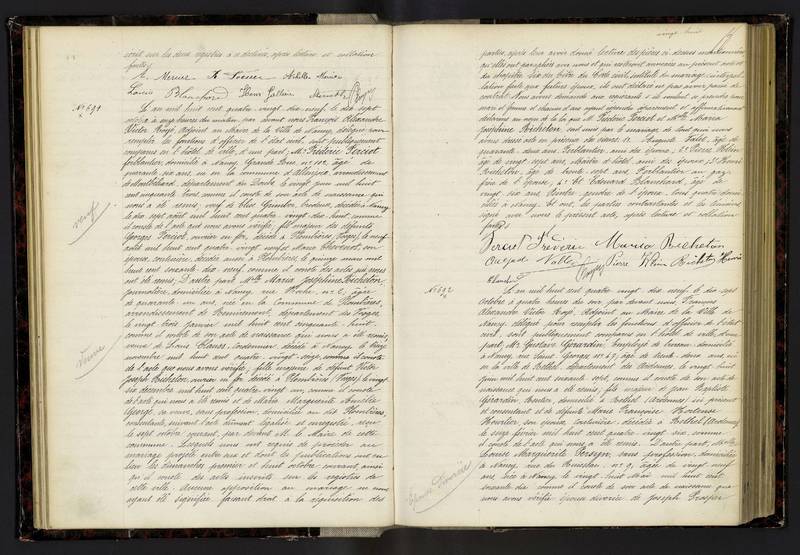 écrit sur les deux registres à ce destinés, après lecture et collation
faites
Mercier Achille Marie
Louis Blanchard Henri Gallois
N° 691
L'an mil huit cent quatre vingt dix neuf, le dix sept
octobre à onze heures du matin par devant nous François Alexandre
Victor Adjoint au Maire de la Ville de Nancy, délégué pour
remplir les fonctions d'officier de l'état civil, sont publiquement
comparus en l'hôtel de ville, d'une part, Mr Frédéric Perciot
ferblantier, domicilié à Nancy, Grande Rue, n° 102, âgé de
quarante six ans, né en la commune d'
de Montbéliard, département du Doubs le vingt juin mil huit
cent cinquante trois, comme il conste de son acte de naissance qui
nous a été remis, veuf de brodeuse, décédée à Nancy
le dix sept août mil huit cent quatre vingt dix huit, comme
il conste de l'acte que nous avons vérifié, fils majeur des défunts
Georges Perciot, ouvrier en fer, décédé à Plombières (Vosges) le neuf
août mil huit cent quatre vingt neuf et Marie son
épouse, couturière, décédée aussi à Plombières, le quinze mai mil
huit cent soixante dix neuf, comme il conste des actes qui nous
ont été remis; D'autre part Mlle Maria Joséphine Richeton,
journalière, domiciliée à Nancy, rue n° 2, âgée
de quarante un ans, née en la Commune de Plombières,
arrondissement de Remiremont, département des Vosges
le vingt trois janvier mil huit cent cinquante huit,
comme il conste de son acte de naissance qui nous a été remis,
veuve de Louis cordonnier décédé à Nancy le treize
novembre mil huit cent quatre vingt onze, comme il conste
de l'acte que nous avons vérifié, fille majeure de défunt Victor
Joseph Richeton, ouvrier en fer, décédé à Plombières (Vosges) le vingt
six décembre mil huit cent quatre vingt un, comme il conste
de l'acte qui nous a été remis et de Marie Marguerite Amélie
George, sa veuve, sans profession, domiciliée au dit Plombières,
consentante, suivant l'acte dûment légalisé et enregistré, reçu
le sept octobre courant, par devant M. le Maire de cette
commune. Lesquels nous ont requis de procéder au
mariage projeté entre eux et dont les publications ont eu
lieu les dimanches premier et huit octobre courant, ainsi
qu'il conste des actes inscrits sur les registres de
cette ville. Aucune opposition au mariage ne nous
ayant été signifiée, faisant droit à la réquisition des
veuf
veuve
vingt huit
parties, après leur avoir donné lecture des pièces ci-dessus mentionnées
qu'elles ont paraphées avec nous et qui resteront annexées au présent acte et
du chapitre six du titre du Code civil, intitulé du mariage,
faite que futurs époux, ils ont déclaré ne pas avoir passé de
contrat. Nous avons demandé aux susnommés s'ils veulent se prendre pour
mari et femme et chacun d'eux ayant répondu séparément et affirmativement
déclarons au nom de la loi que Mr Frédéric Perciot et Mlle Maria
Joséphine Richeton, sont unis par le mariage. De tout quoi nous
avons dressé acte en présence de MM. 1° August Vallé, âgé de
quarante deux ans, ferblantier, ami des époux; 2° Pierre Klein
âgé de vingt sept ans, Maître d'hôtel, ami des époux; 3° Henri
Richeton, âgé de trente sept ans, ferblantier au gaz,
frère de l'épouse; 4° et Edouard Blanchard, âgé de
vingt six ans, de l'épouse, tous quatre domiciliés
à Nancy. Et ont, les parties contractantes et les témoins
signé avec nous le présent acte, après lecture et collation
faites
Perciot Frédéric Maria Richeton
August Vallé Pierre Klein Richeton Henri
Blanchard
N° 692
L'an mil huit cent quatre vingt dix neuf, le dix sept
octobre à quatre heures du soir par devant nous François
Alexandre Victor Adjoint au Maire de la Ville de
Nancy, délégué pour remplir les fonctions d'officier de l'état
civil, sont publiquement comparus en l'hôtel de ville, d'une
part, Mr Gustave Gérardin, employé de bureau, domicilié
à Nancy, rue Saint Georges n° 49, âgé de trente deux ans, né
en la ville de Rethel, département des Ardennes, le vingt huit
juin mil huit cent soixante sept, comme il conste de son acte de
naissance qui nous a été remis, fils majeur de Jean Baptiste
Gérardin, Rentier, domicilié à Rethel (Ardennes) ici présent
et consentant et de défunte Marie Françoise Hortense
Hourlier, son épouse, couturière, décédée à Rethel (Ardennes)
le onze février mil huit cent quatre vingt six, comme
il conste de l'acte qui nous a été remis. D'autre part, Mlle
Louise Marguerite Persyn, sans profession, domiciliée
à Nancy, rue du Ruisseau n° 9, âgée de vingt neuf
ans, née à Nancy le vingt huit Mai mil huit cent
soixante dix comme il conste de son acte de naissance que
nous avons vérifié, épouse divorcée de Joseph Prosper
Epouse divorcée